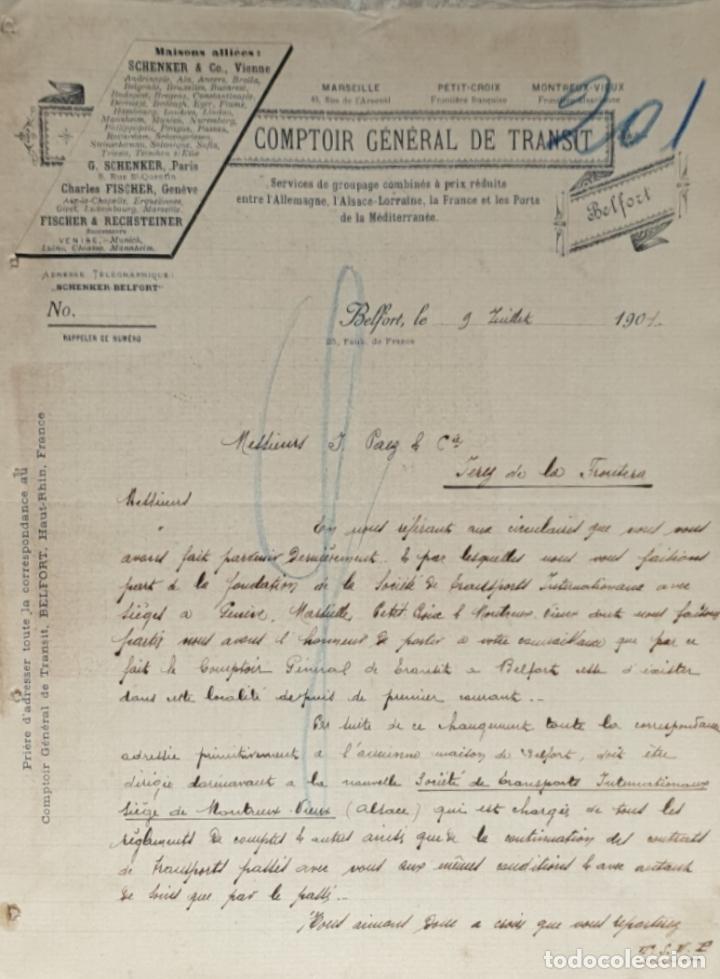 Maisons alliées:
SCHENKER & Co., Vienne
Andrinople, Aix, Anvers, Braila,
Belgrade, Bruxelles, Bucarest,
Budapest, Bregenz, Constantinople,
Eger, Fiume,
Hambourg, London, Lindau,
Mannheim, Munich, Nuremberg,
Philippopoli, Prague, Passau,
Salonique, Sofia,
G. SCHENKER, Paris
8, Rue St-Quentin
Charles FISCHER, Genève
Aix-la-Chapelle, Erquelinnes,
Givet, Luxembourg, Marseille.
FISCHER & RECHSTEINER
Successeurs
VENISE, - Munich,
Luino, Chiasso, Mannheim.
MARSEILLE PETIT-CROIX MONTREUX-VIEUX
Rue de l'Arsenal Frontière française
201
COMPTOIR GÉNÉRAL DE TRANSIT
Services de groupage combinés à prix réduits
entre l'Allemagne, l'Alsace-Lorraine, la France et les Ports
de la Méditerranée.
Belfort
ADRESSE TÉLÉGRAPHIQUE:
„SCHENKER BELFORT"
No.
RAPPELER CE NUMÉRO
Belfort, le 9 Juillet 1901.
25, Faub. de France
Prière d'adresser toute la correspondance au
Comptoir Général de Transit, BELFORT, Haut-Rhin, France
Messieurs J. Paez & Cie
Jerez de la Frontera
Messieurs
En nous référant aux circulaires que nous vous
avons fait parvenir dernièrement & par lesquelles nous vous faisions
part de la fondation de la Société de Transports Internationaux avec
sièges à Genève, Marseille, Petit Croix & Montreux vieux dont nous faisons
partis nous avons l'honneur de porter à votre connaissance que par ce
fait le Comptoir Général de Transit à Belfort cesse d'exister
dans cette localité depuis le premier courant.-
Par suite de ce changement toute la correspondance
adressée primitivement à l'ancienne maison de Belfort, doit être
dirigée dorénavant à la nouvelle Société de Transports Internationaux
siège de Montreux-Vieux (Alsace) qui est chargée de tous les
règlements de comptes & autres ainsi que de la continuation des contrats
de transports passés avec vous aux mêmes conditions & avec autant
de soins que par le passé.-
Nous aimons donc à croire que vous reporterez
T.S.V.P